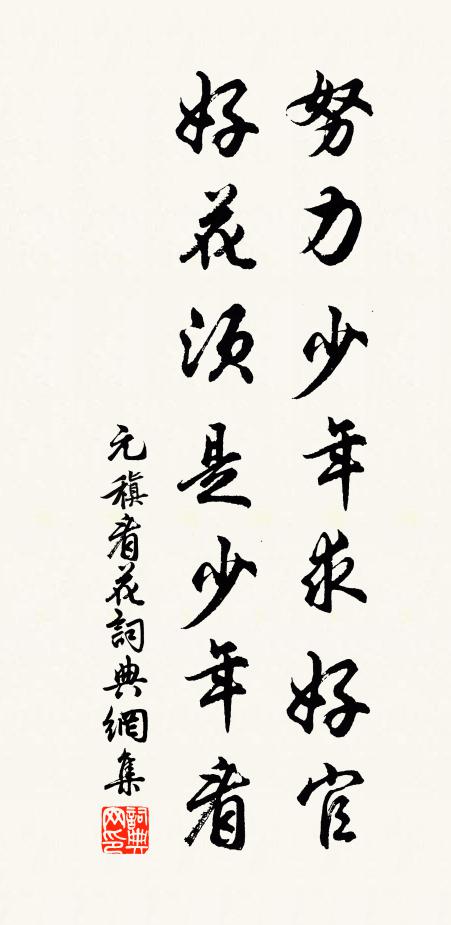 努力少年求好官
好花须是少年看
元稹看花詞典網集
詞典網印